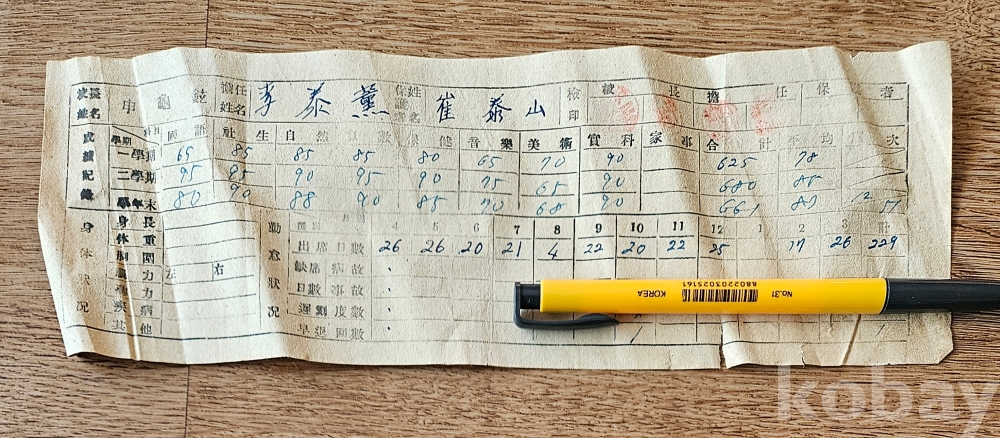 校長 申龜鉉 擔任 李泰薰 保證者 姓名 崔泰山 檢印 校長 擔任 保 者
姓名 姓名
成績記錄 學期 科目 國語 社生 自然 數 保健 音樂 美術 實科 家事 合計 平均 次
一學期 65 85 85 85 80 65 70 90 625 78
二學期 95 95 90 95 90 75 65 90 680 85
學年末 80 90 88 90 85 70 68 90 661
身体狀況 身長 勤怠狀況 4 5 6 7 8 9 10 11 12 1 2 3 計
体重 出席日數 26 26 20 21 4 22 20 22 25 17 26 229
胸圍 缺席 病故
力 左 右 日數 事故
力 遲 度數
疾病 早退回數
其他
No.31
8802023025161
KOREA
kobay